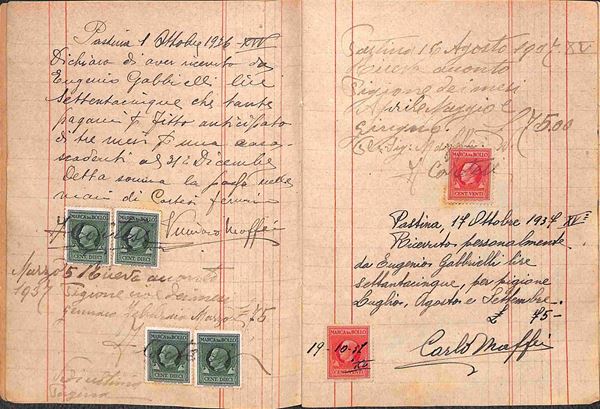 Pastina 1 Ottobre 1936 XIV
Dichiaro di aver ricevuto da
Eugenio Gabbrielli lire
Settantacinque che tante
pagami per fitto anticipato
di tre mesi per una casa
scadenti al 31 Dicembre
Detta somma la passo nelle
mani di Costei
Vincenzo Maffei
MARCA DA BOLLO
CENT. DIECI
MARCA DA BOLLO
CENT. DIECI
Marzo 5 Ricevuta acconto
1937 Pigione dei mesi
Gennaio Febbraio Marzo £ 75
MARCA DA BOLLO
CENT. DIECI
MARCA DA BOLLO
CENT. DIECI
Pastina 18 Agosto 1937 XV
Ricevuta acconto
Pigione dei mesi
Aprile Maggio e
Giugno 75.00
MARCA DA BOLLO
CENT. VENTI
Pastina, 17 Ottobre 1937 XVº
Ricevuto personalmente
da Eugenio Gabbrielli lire
settantacinque, per pigione
Luglio, Agosto e Settembre.
£ 75-
MARCA DA BOLLO
CENT. VENTI
19-10-37
XV
Carlo Maffei